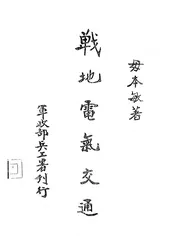 毋本敏著
戰地電氣交通
軍政部兵工署刊行